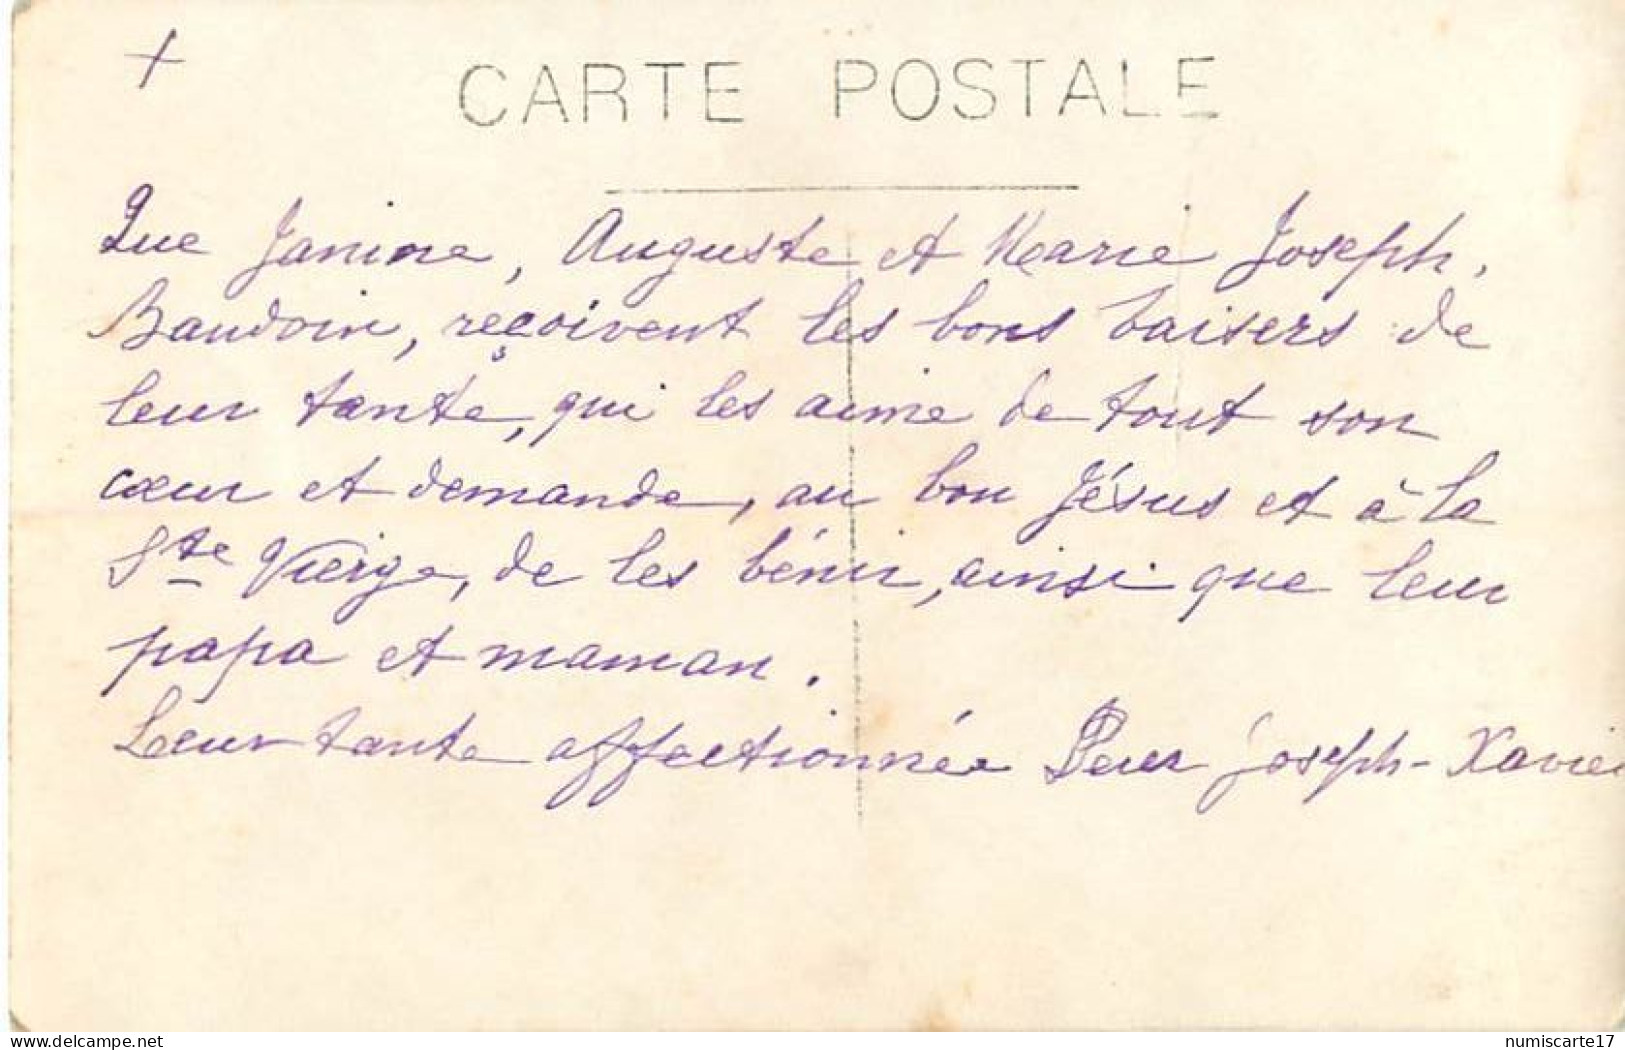 +
CARTE POSTALE
Que Janine, Auguste et Marie Joseph,
Baudoin, reçoivent les bons baisers de
leur tante, qui les aime de tout son
cœur et demande, au bon Jésus et à la
Ste Vierge, de les bénir, ainsi que leur
papa et maman.
Leur tante affectionnée Sœur Joseph-Xavier
delcampe.net
numiscarte17